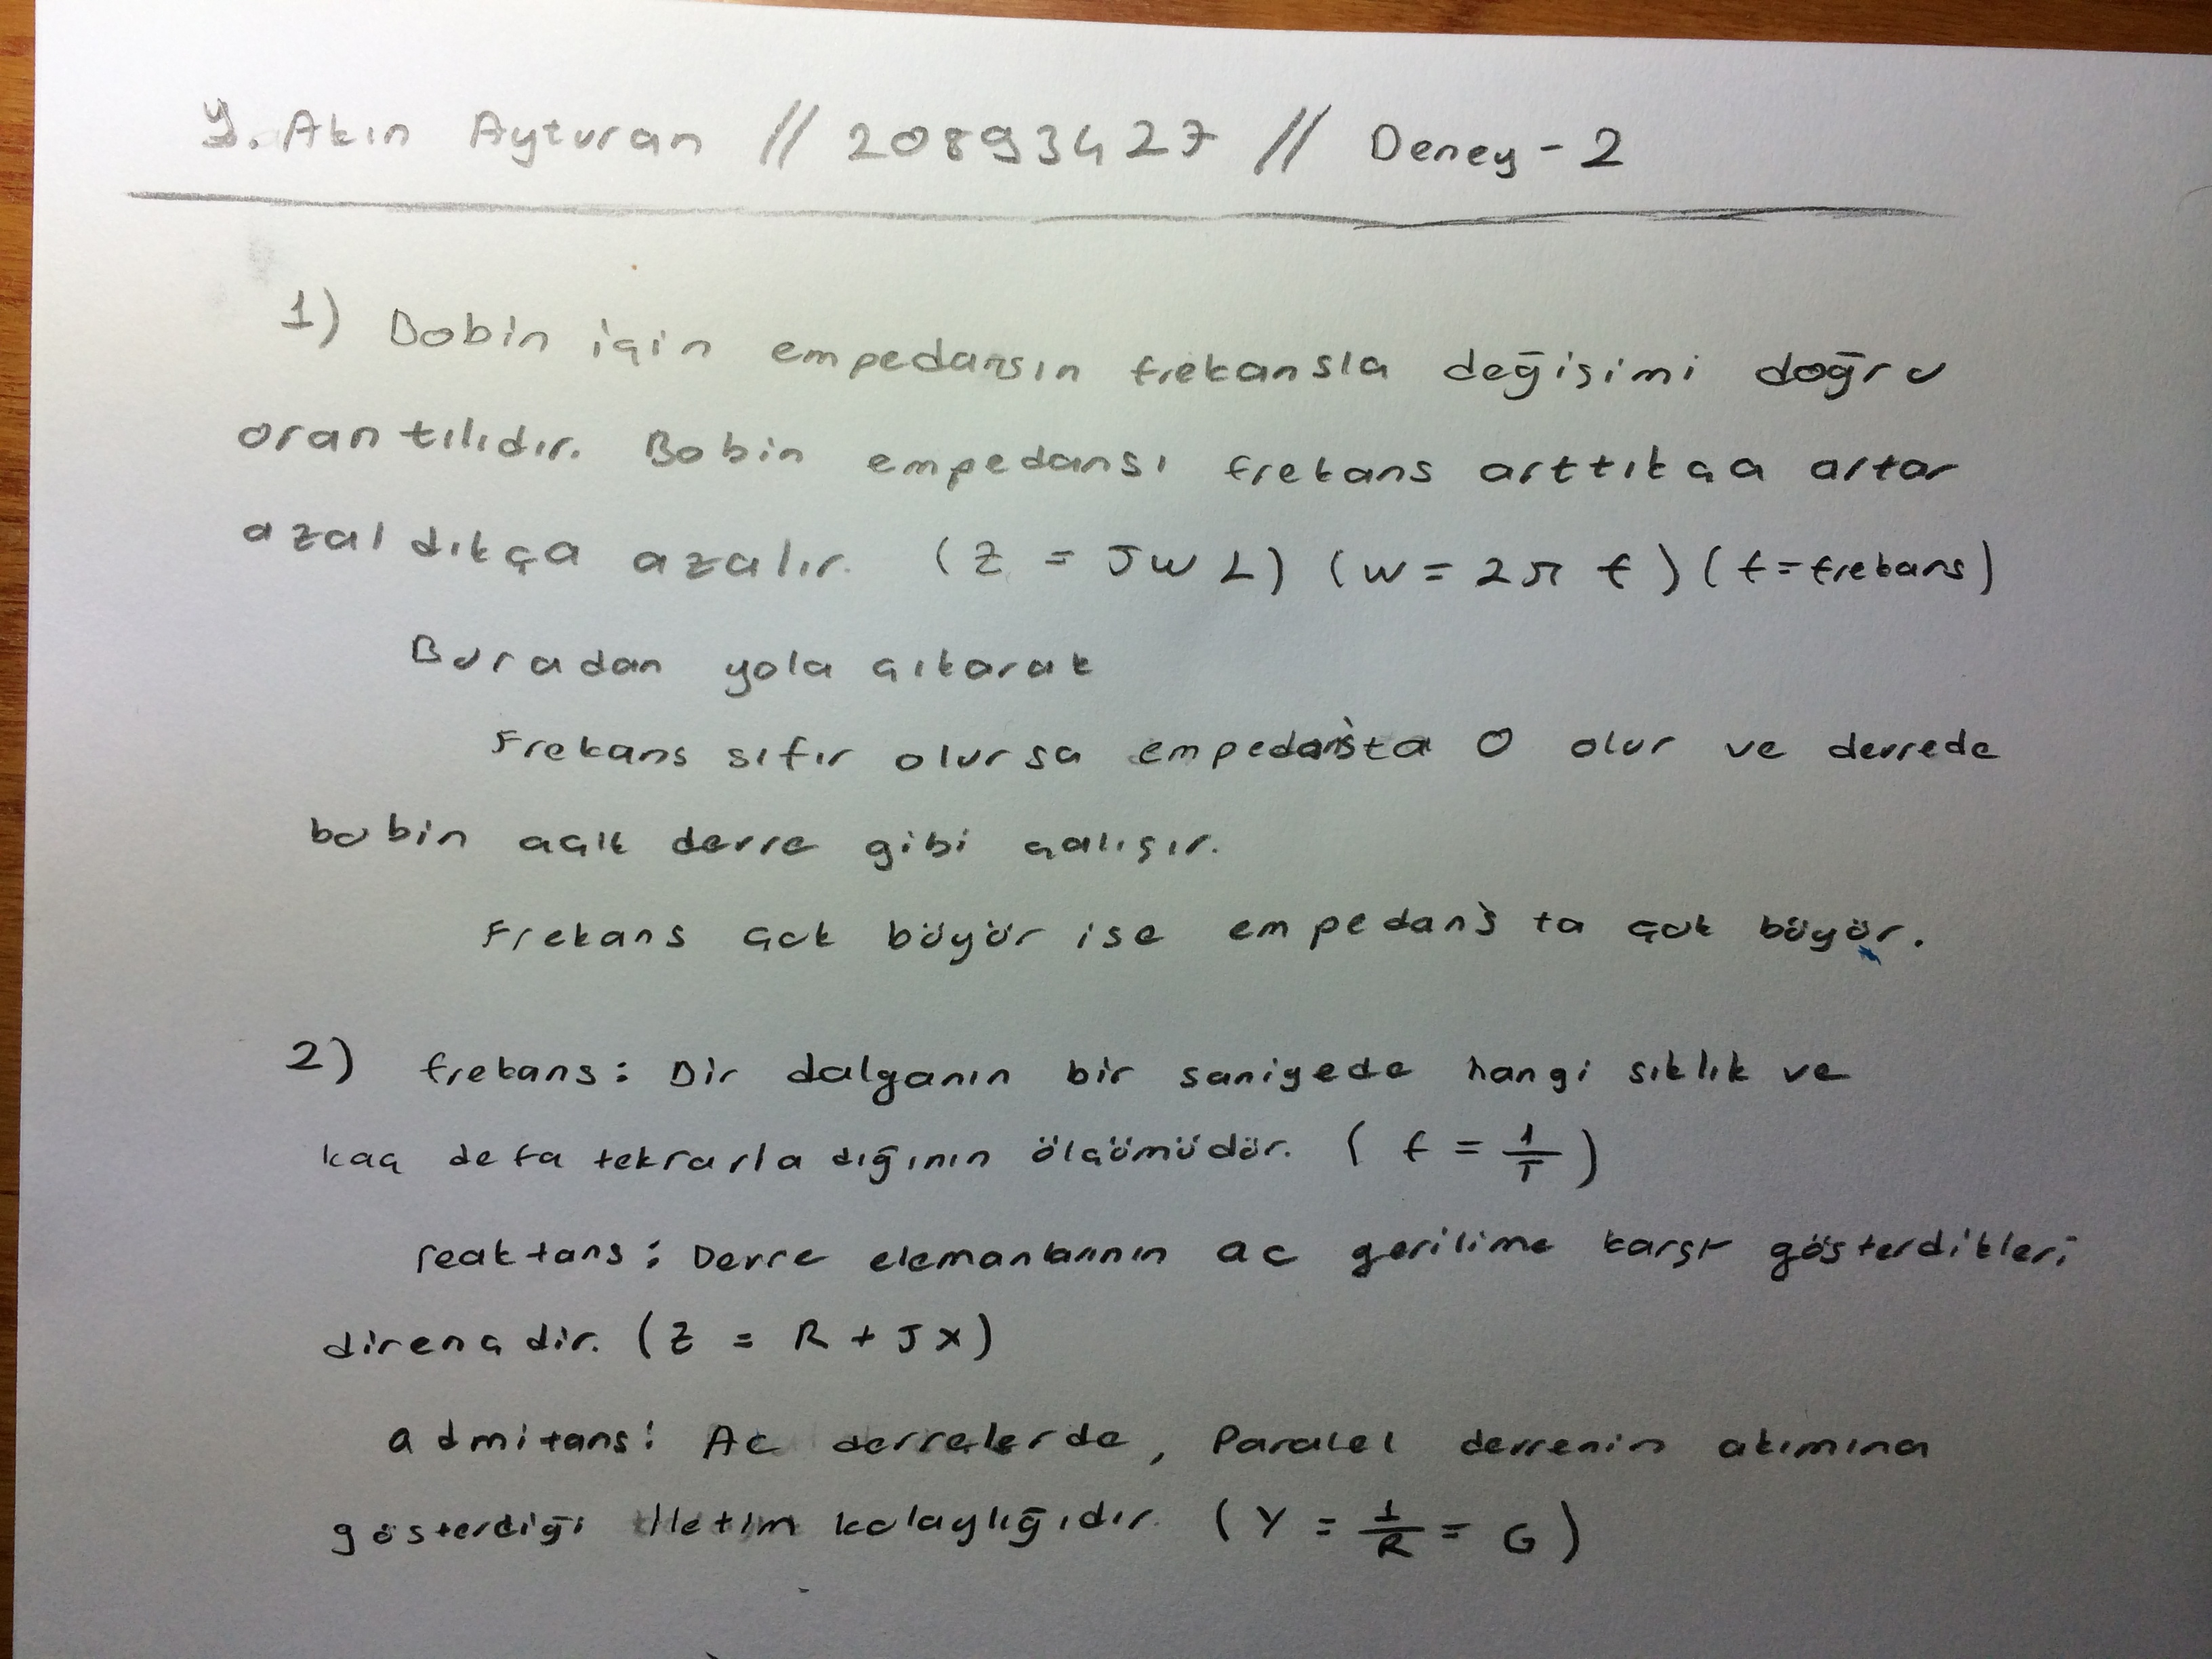 Y. Akın Ayturan // 20893427 // Deney - 2
1) Bobin için empedansın frekansla değişimi doğru
orantılıdır. Bobin empedansı frekans arttıkça artar
azaldıkça azalır. (Z = JwL) (w = 2π f) (f = frekans)
Buradan yola çıkarak
Frekans sıfır olursa empedans'ta 0 olur ve devrede
bobin açık devre gibi çalışır.
Frekans çok büyür ise empedans'ta çok büyür.
2) frekans : Bir dalganın bir saniyede hangi sıklık ve
kaç defa tekrarladığının ölçümüdür. ( f = 1/T )
reaktans : Devre elemanlarının ac gerilime karşı gösterdikleri
dirençdir. (Z = R + JX)
admitans : AC devrelerde, Paralel devrenin akımına
gösterdiği iletim kolaylığıdır. (Y = 1/R = G)